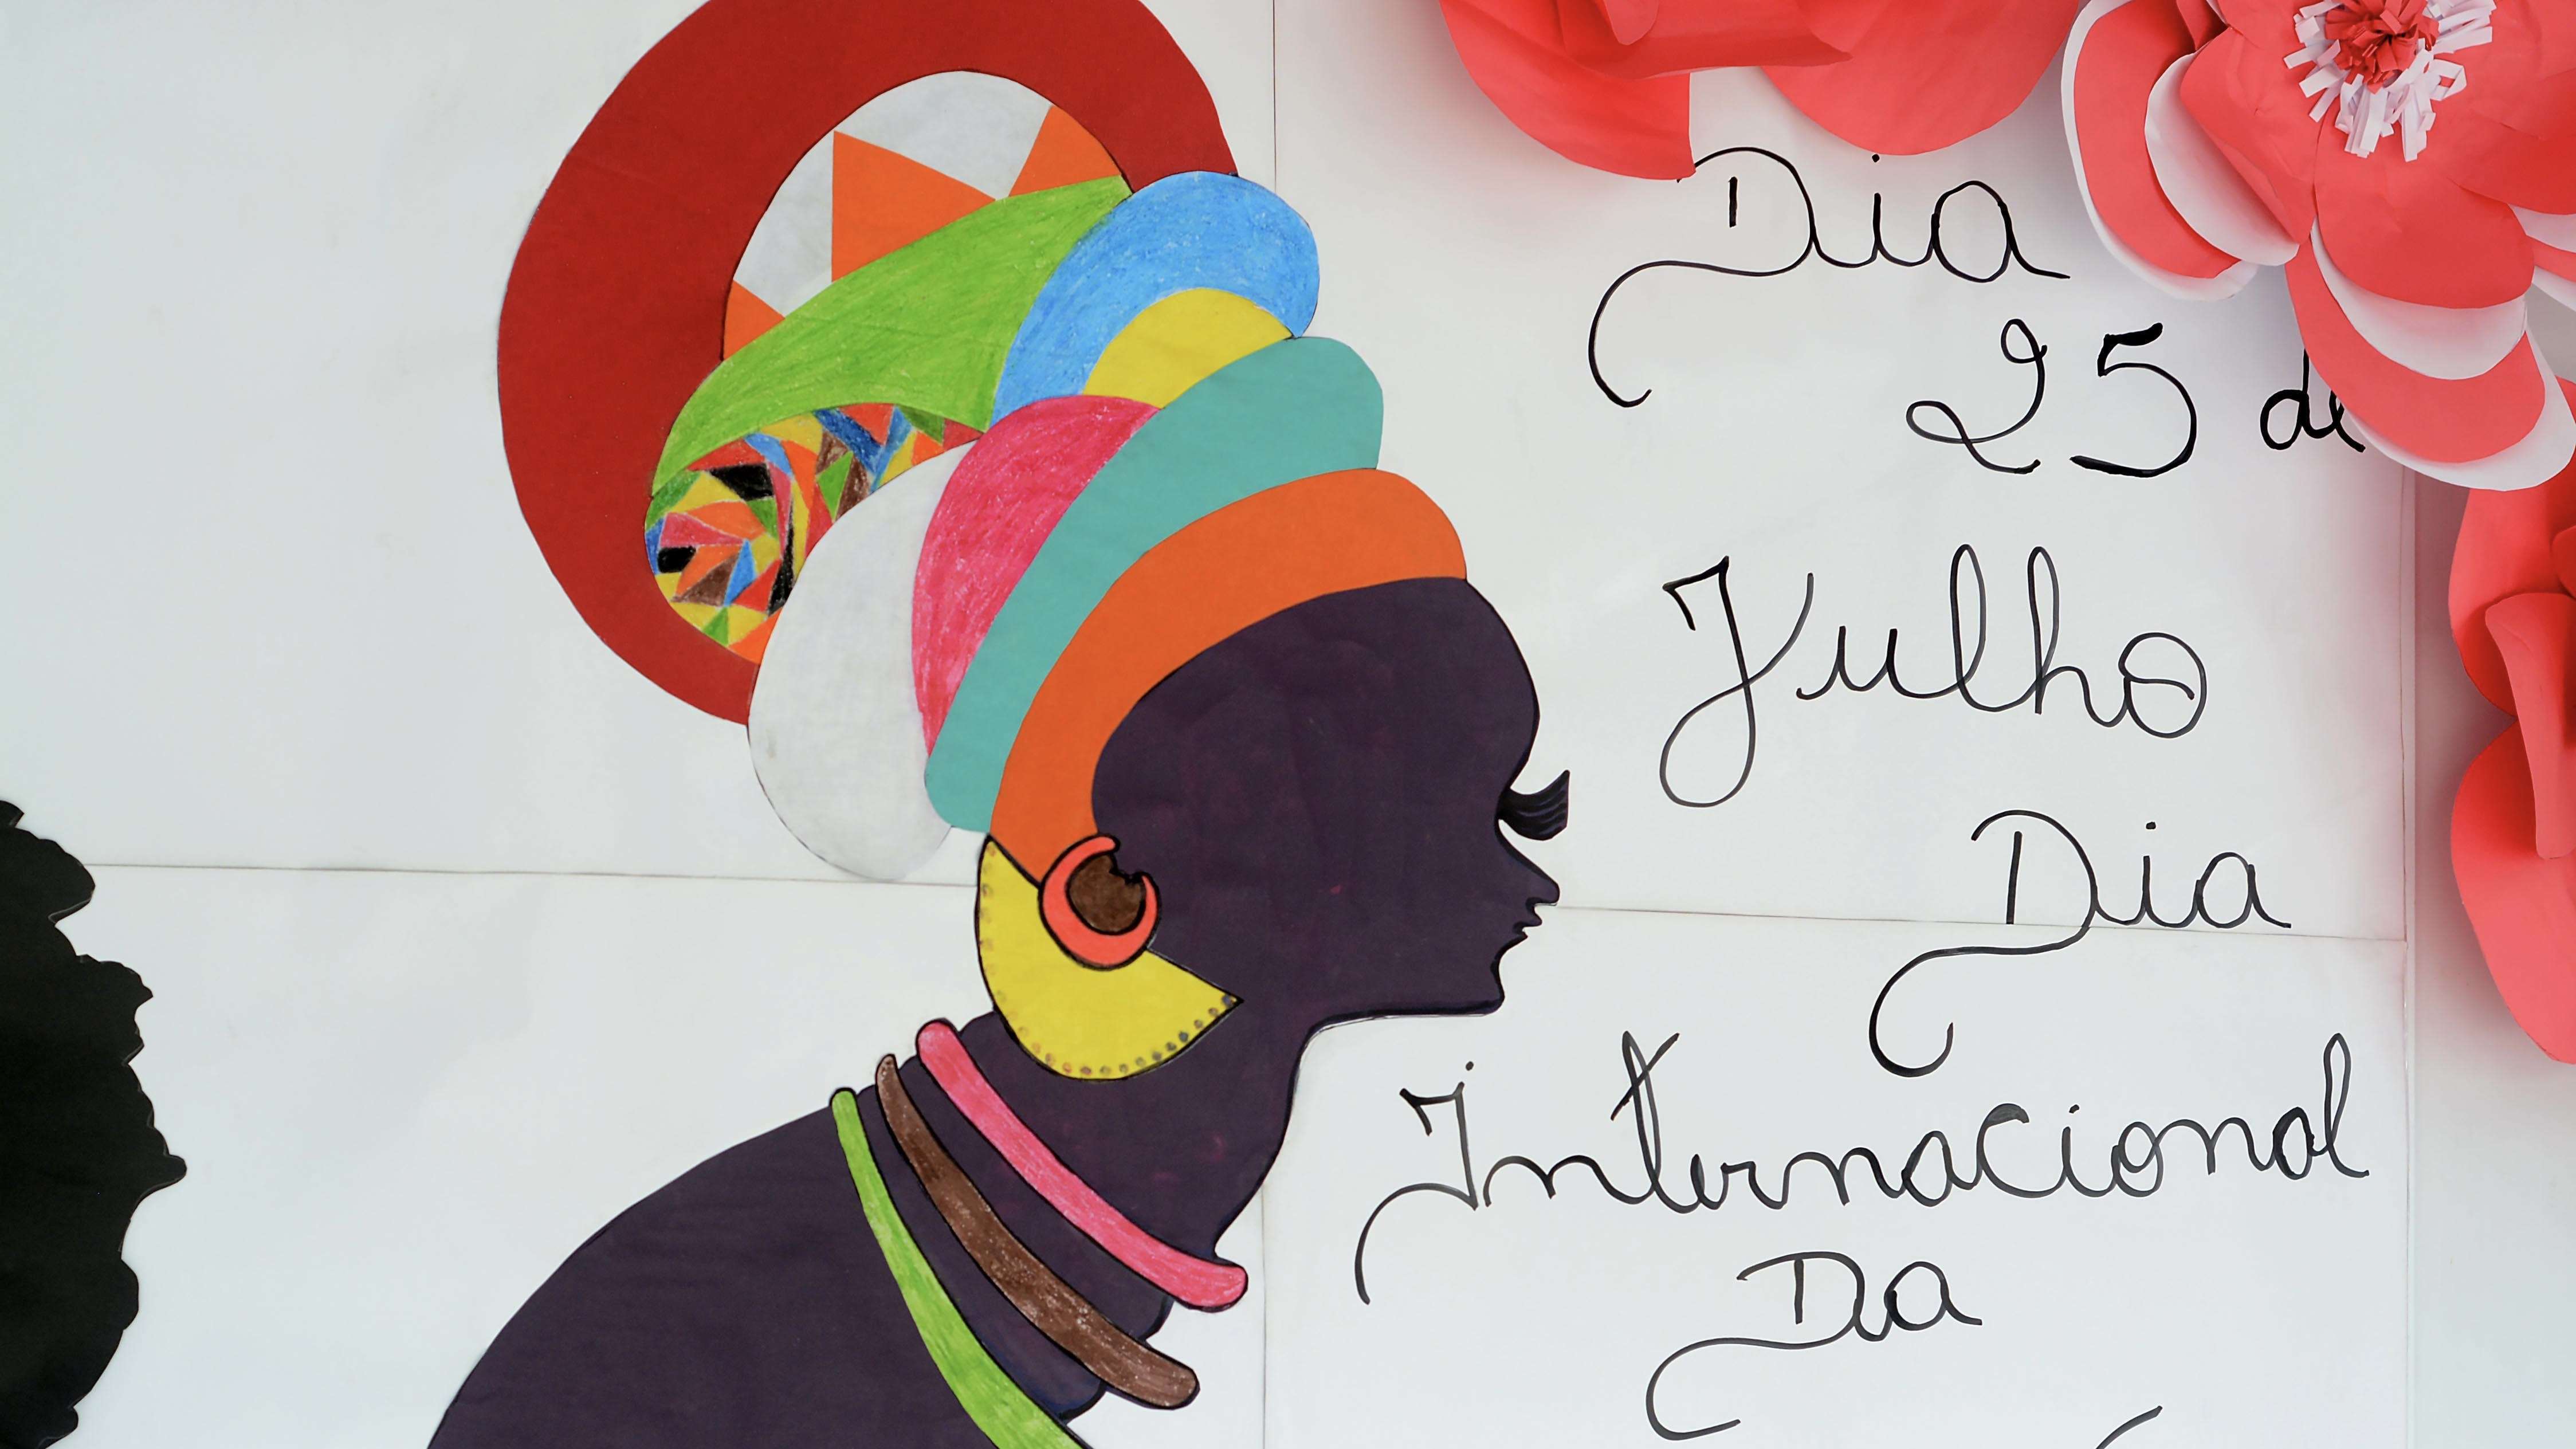 Dia
25 de
Julho
Dia
Internacional
Da